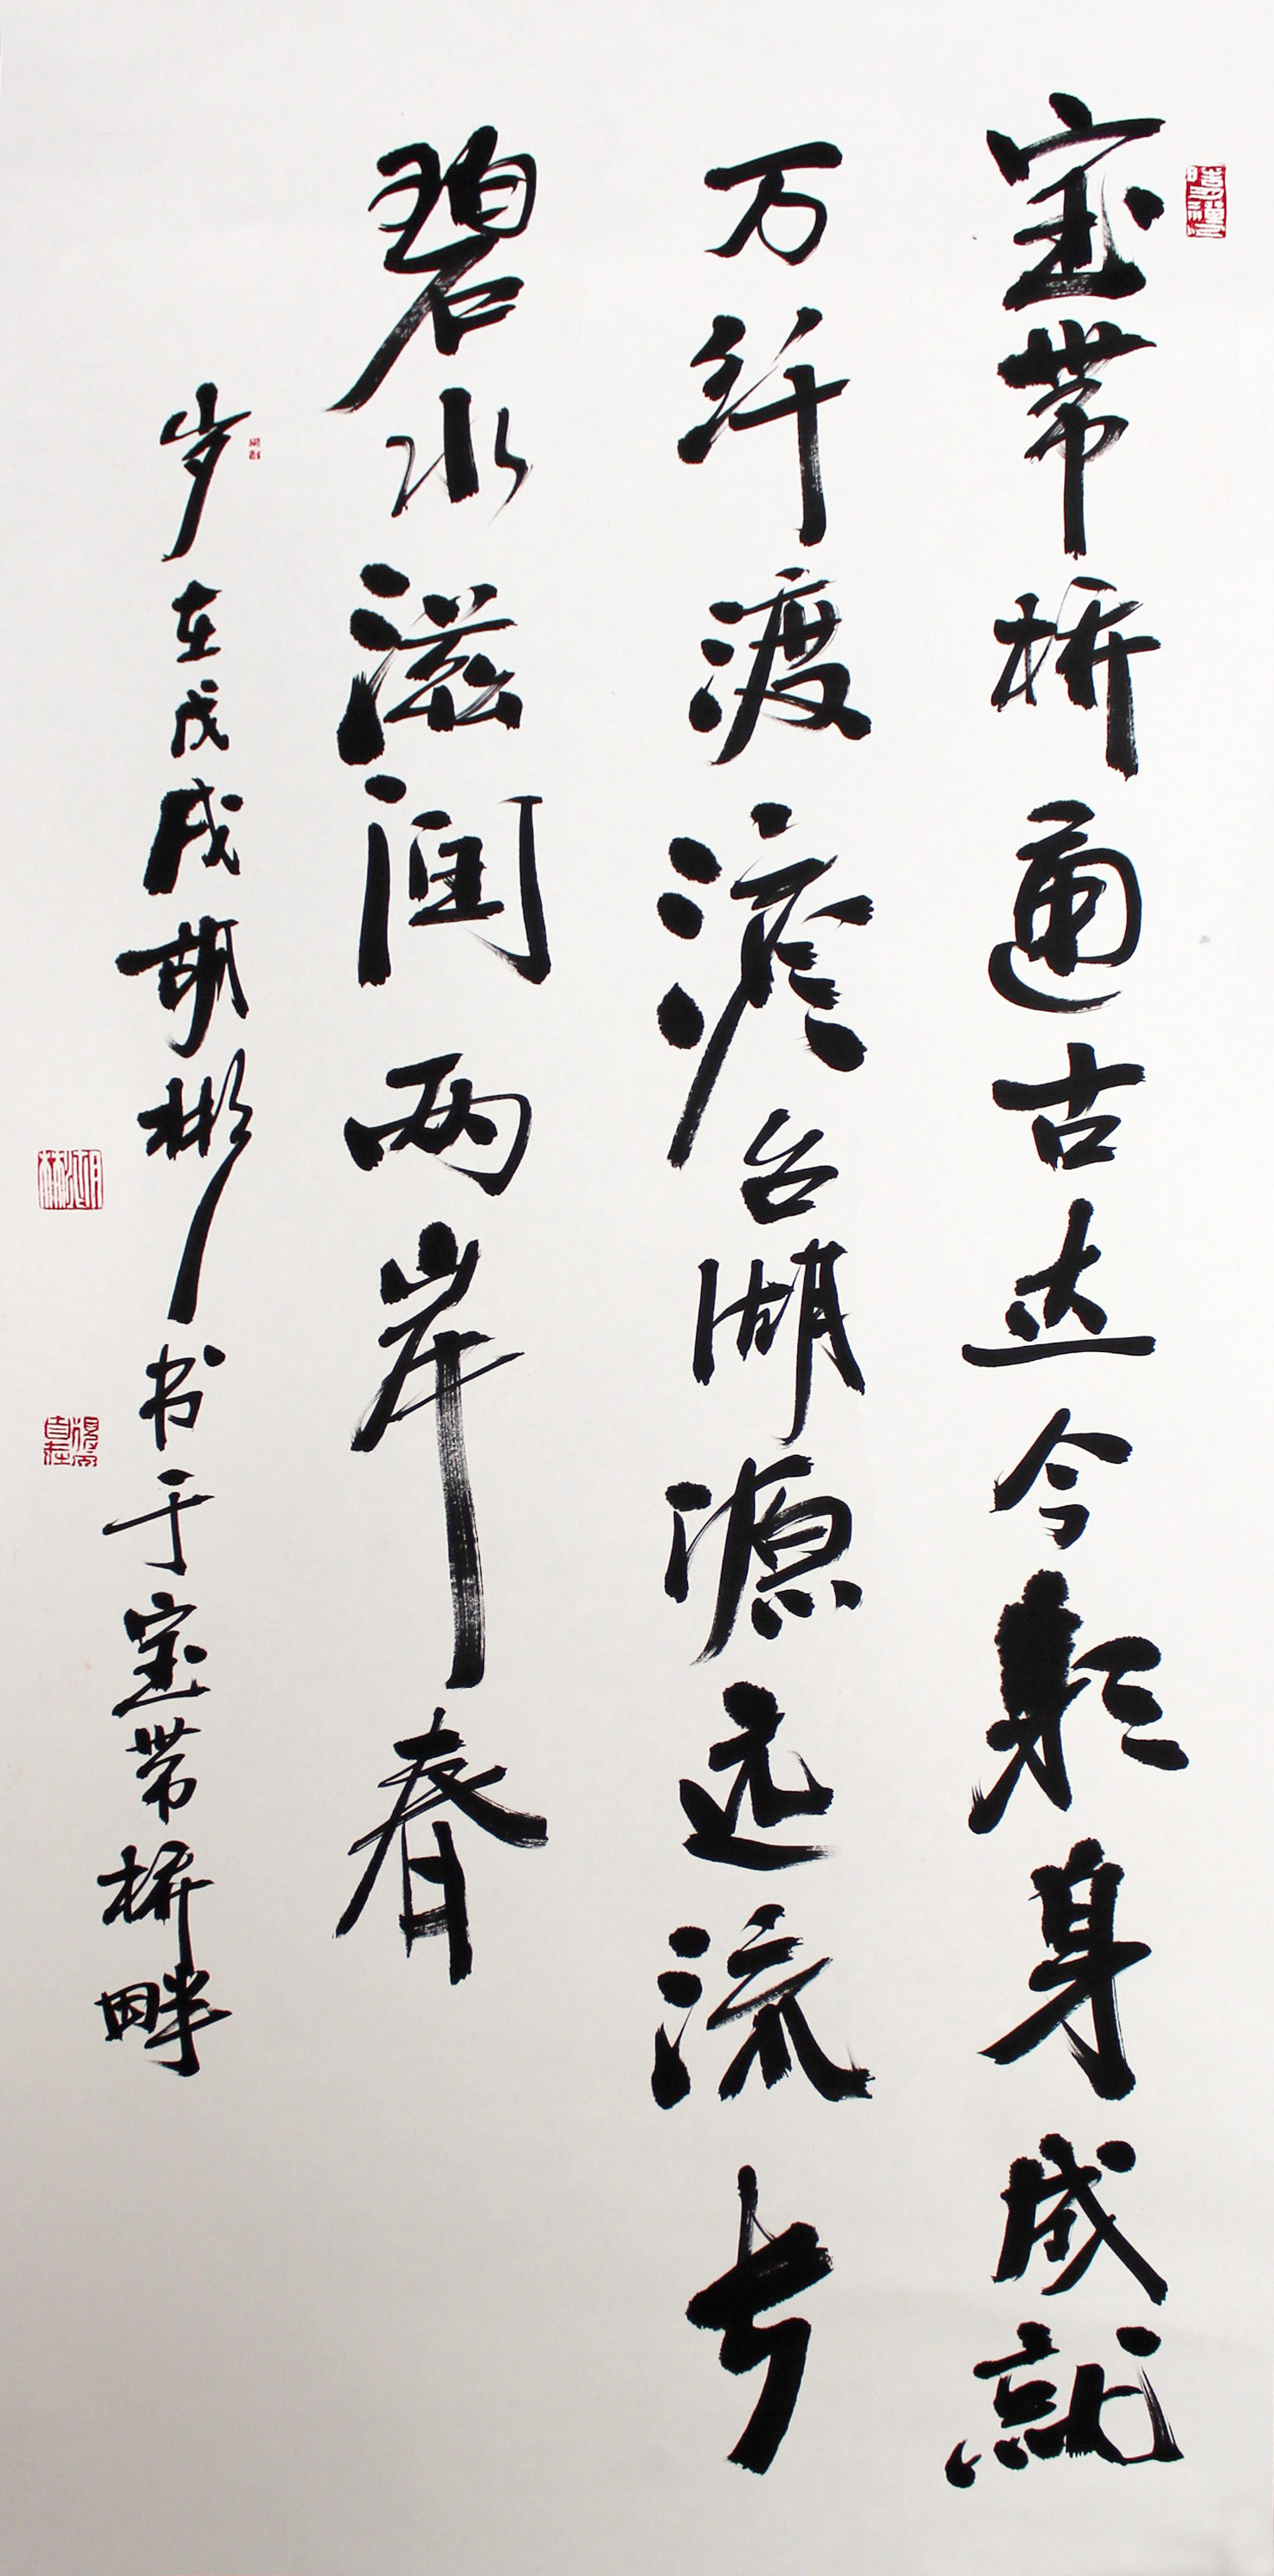 宝带桥通古达今躬身成就
万纤渡澹台湖源远流长
碧水滋润两岸春
岁在戊戌胡彬书于宝带桥畔